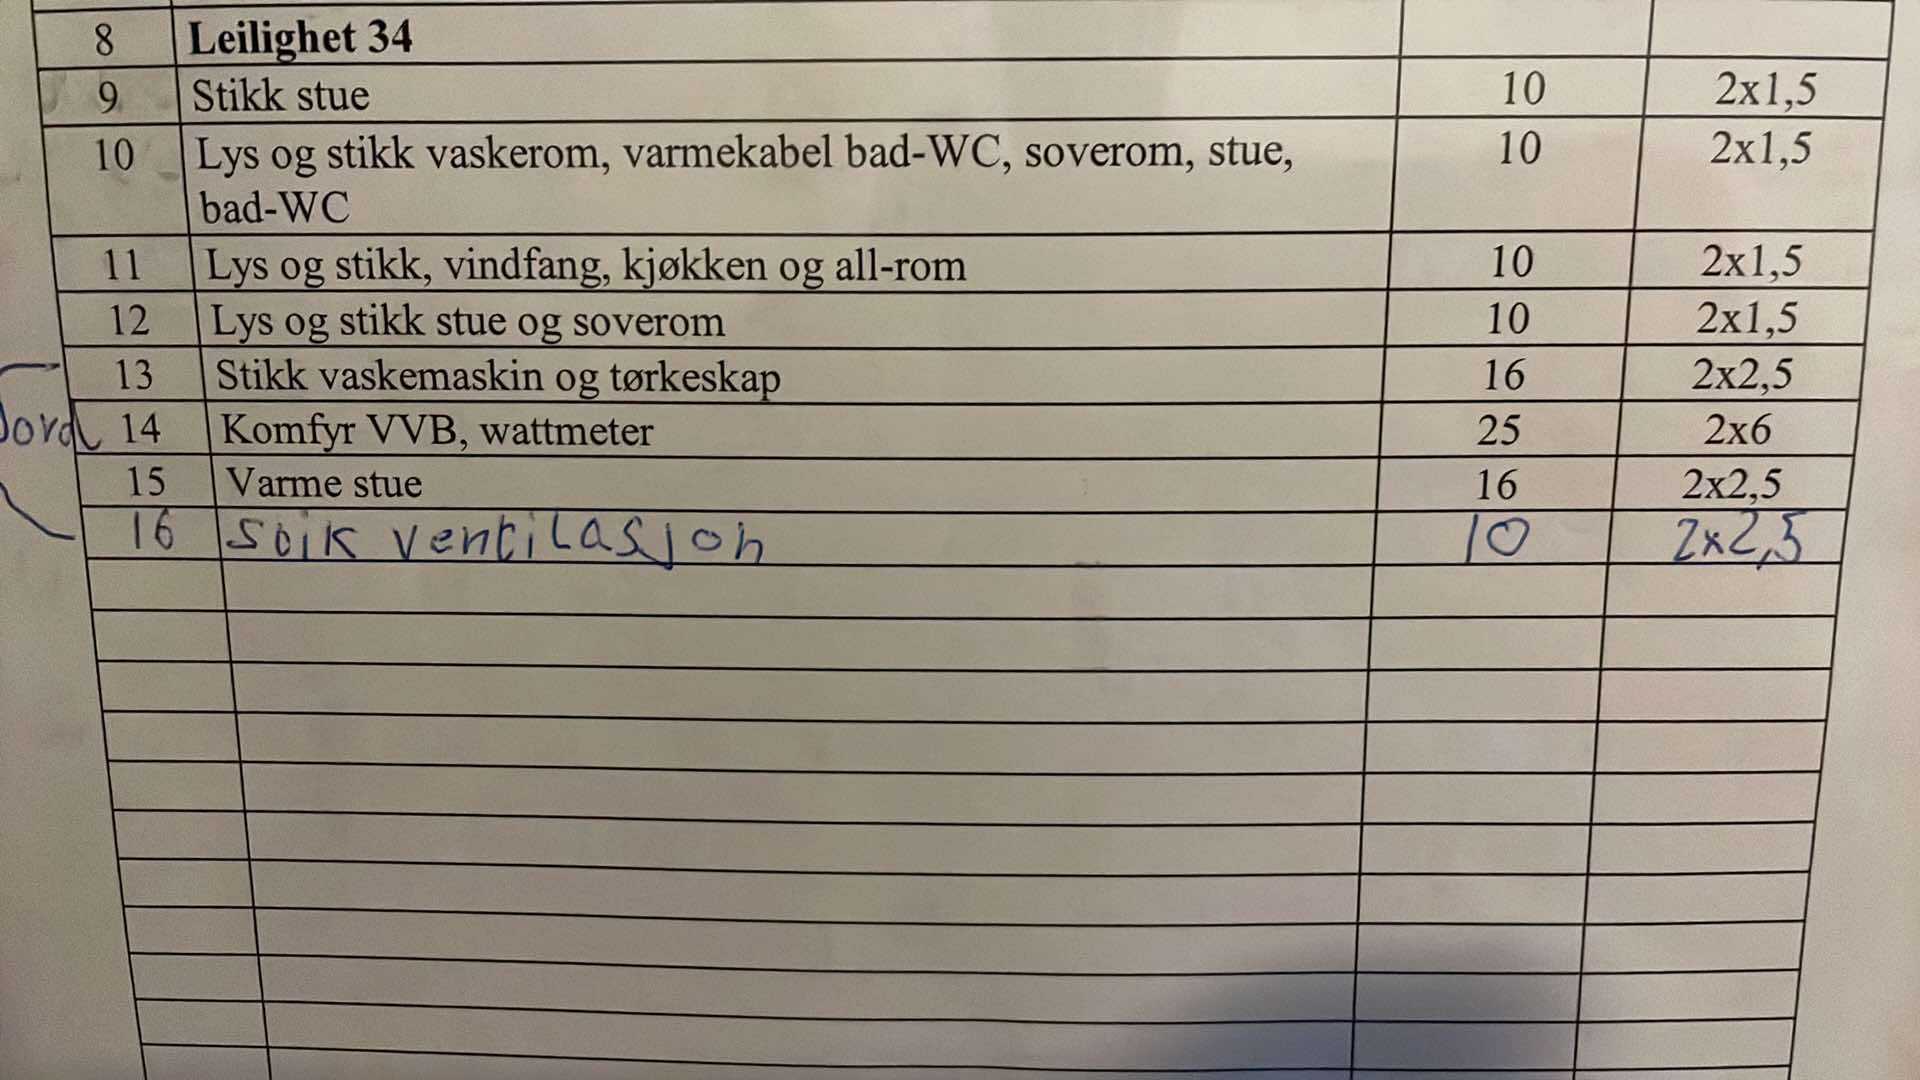 8 Leilighet 34
9 Stikk stue 10 2x1,5
10 Lys og stikk vaskerom, varmekabel bad-WC, soverom, stue, 10 2x1,5
bad-WC
11 Lys og stikk, vindfang, kjøkken og all-rom 10 2x1,5
12 Lys og stikk stue og soverom 10 2x1,5
13 Stikk vaskemaskin og tørkeskap 16 2x2,5
Jord 14 Komfyr VVB, wattmeter 25 2x6
15 Varme stue 16 2x2,5
16 Stik ventilasjon 10 2x2,5